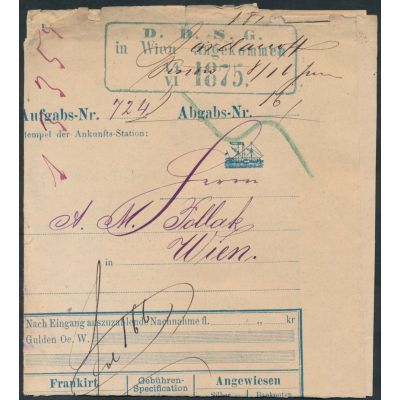 D. D. S. G.
in Wien angekommen
VI 1875.
13354
Aufgabs-Nr. 724 Abgabs-Nr. 16
tempel der Ankunfts-Station:
Herrn
A. M. Pollak
in Wien.
Nach Eingang auszuzahlende Nachnahme fl. „ kr
Gulden Oe. W.
Frankirt
Gebühren-Specification
Angewiesen
Silber Banknoten